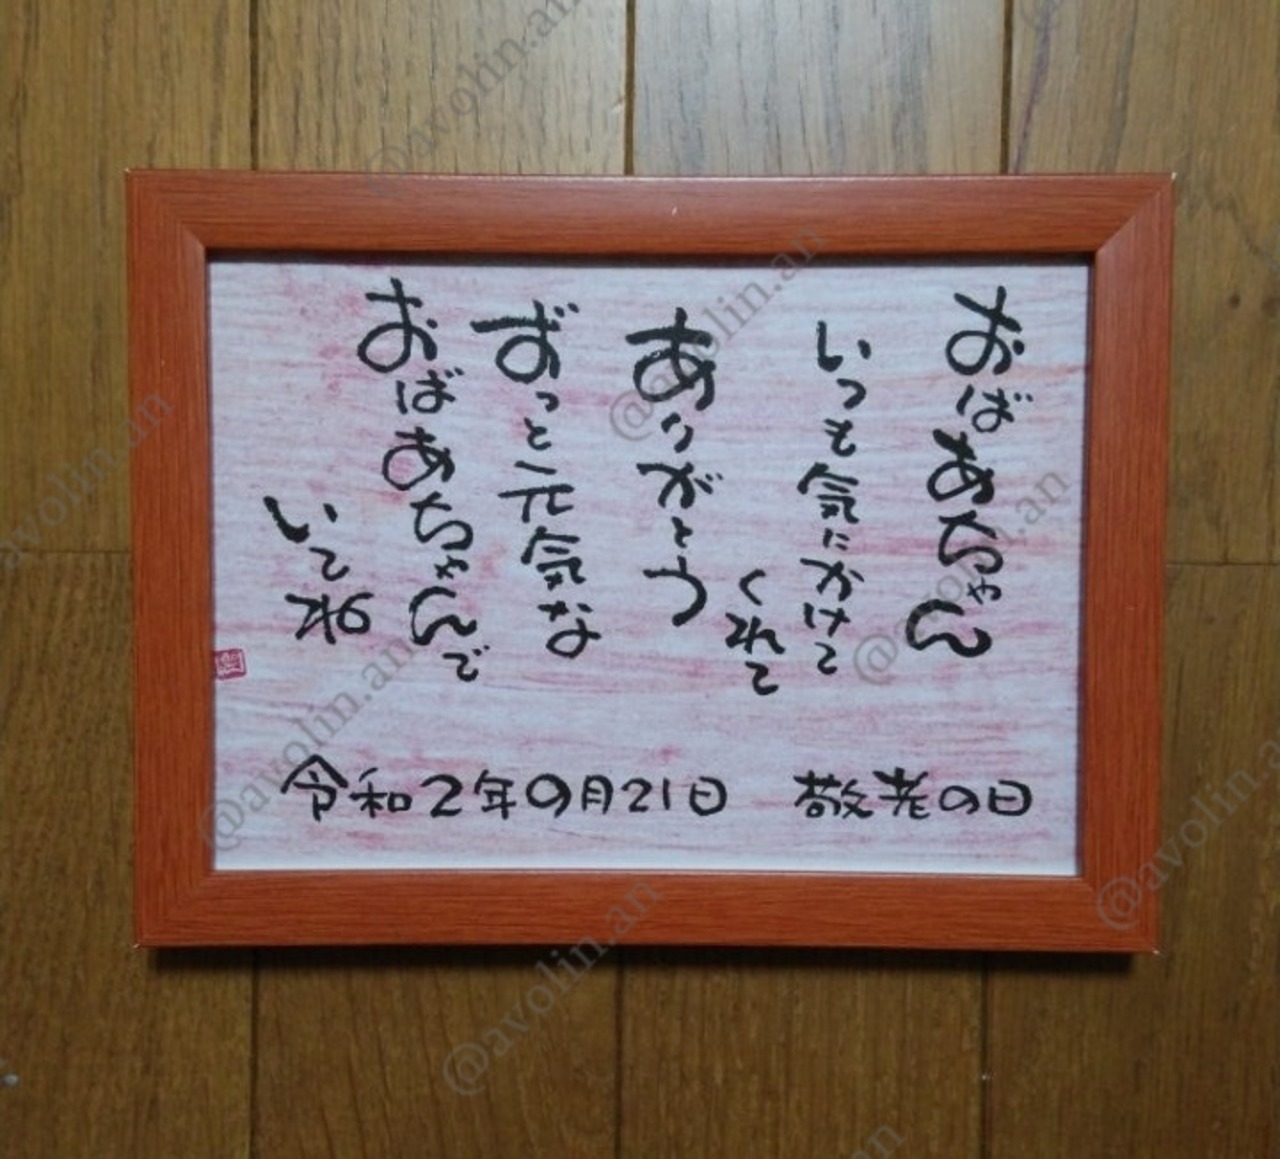 おばあちゃん
いつも気にかけて
くれて
ありがとう
ずっと元気な
おばあちゃんで
いてね
令和2年9月21日 敬老の日
@avolin.an